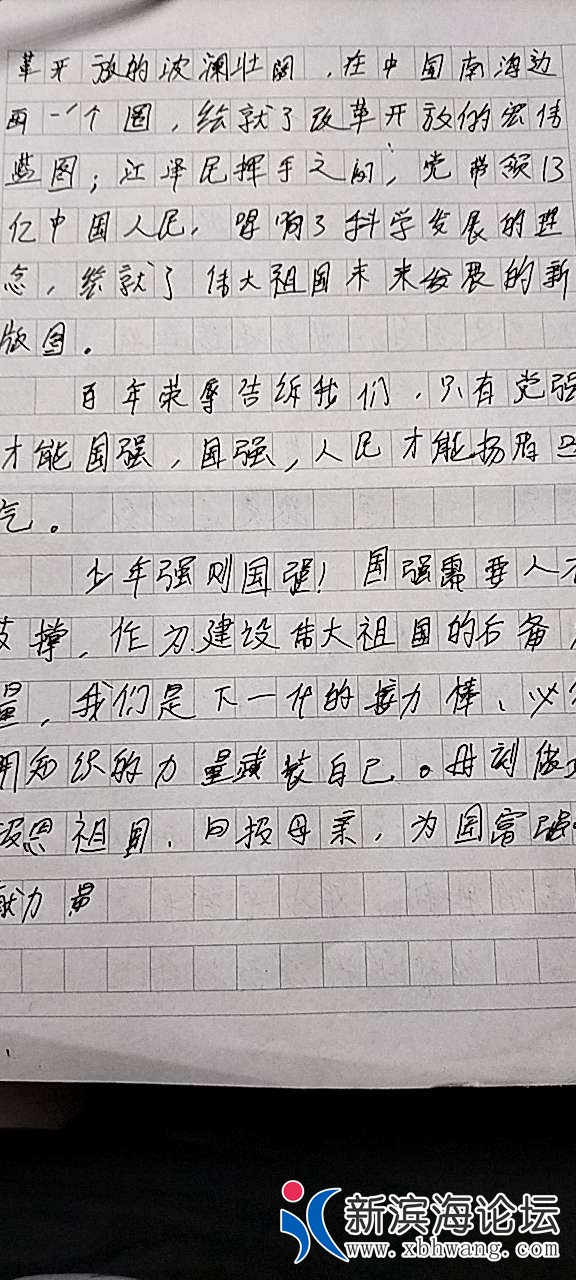 革开放的波澜壮阔，在中国南海边
画一个圈，绘就了改革开放的宏伟
蓝图；江泽民挥手之间，党带领13
亿中国人民，唱响了科学发展的进
念，绘就了伟大祖国未来发展的新
版图。
百年荣辱告诉我们，只有党强
才能国强，国强，人民才能扬眉
气。
少年强则国强！国强需要人才
支撑，作为建设伟大祖国的后备
量，我们是下一代的接力棒、必
用知识的力量武装自己。时刻做
报恩祖国、回报母亲，为国富强
献力量
新滨海论坛
www.xbhwang.com